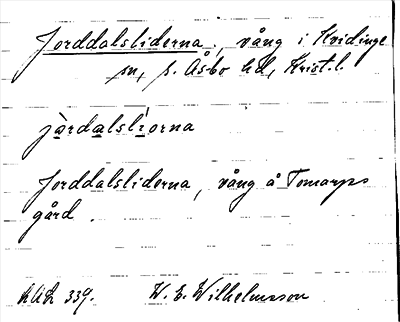 Jorddalsliderna, vång i Kvidinge
sn, s. Åsbo hd, Krist. l.
jòrdalslìorna
Jorddalsliderna, vång å Tomarps
gård.
LUA 339. W. E. Wilhelmsson